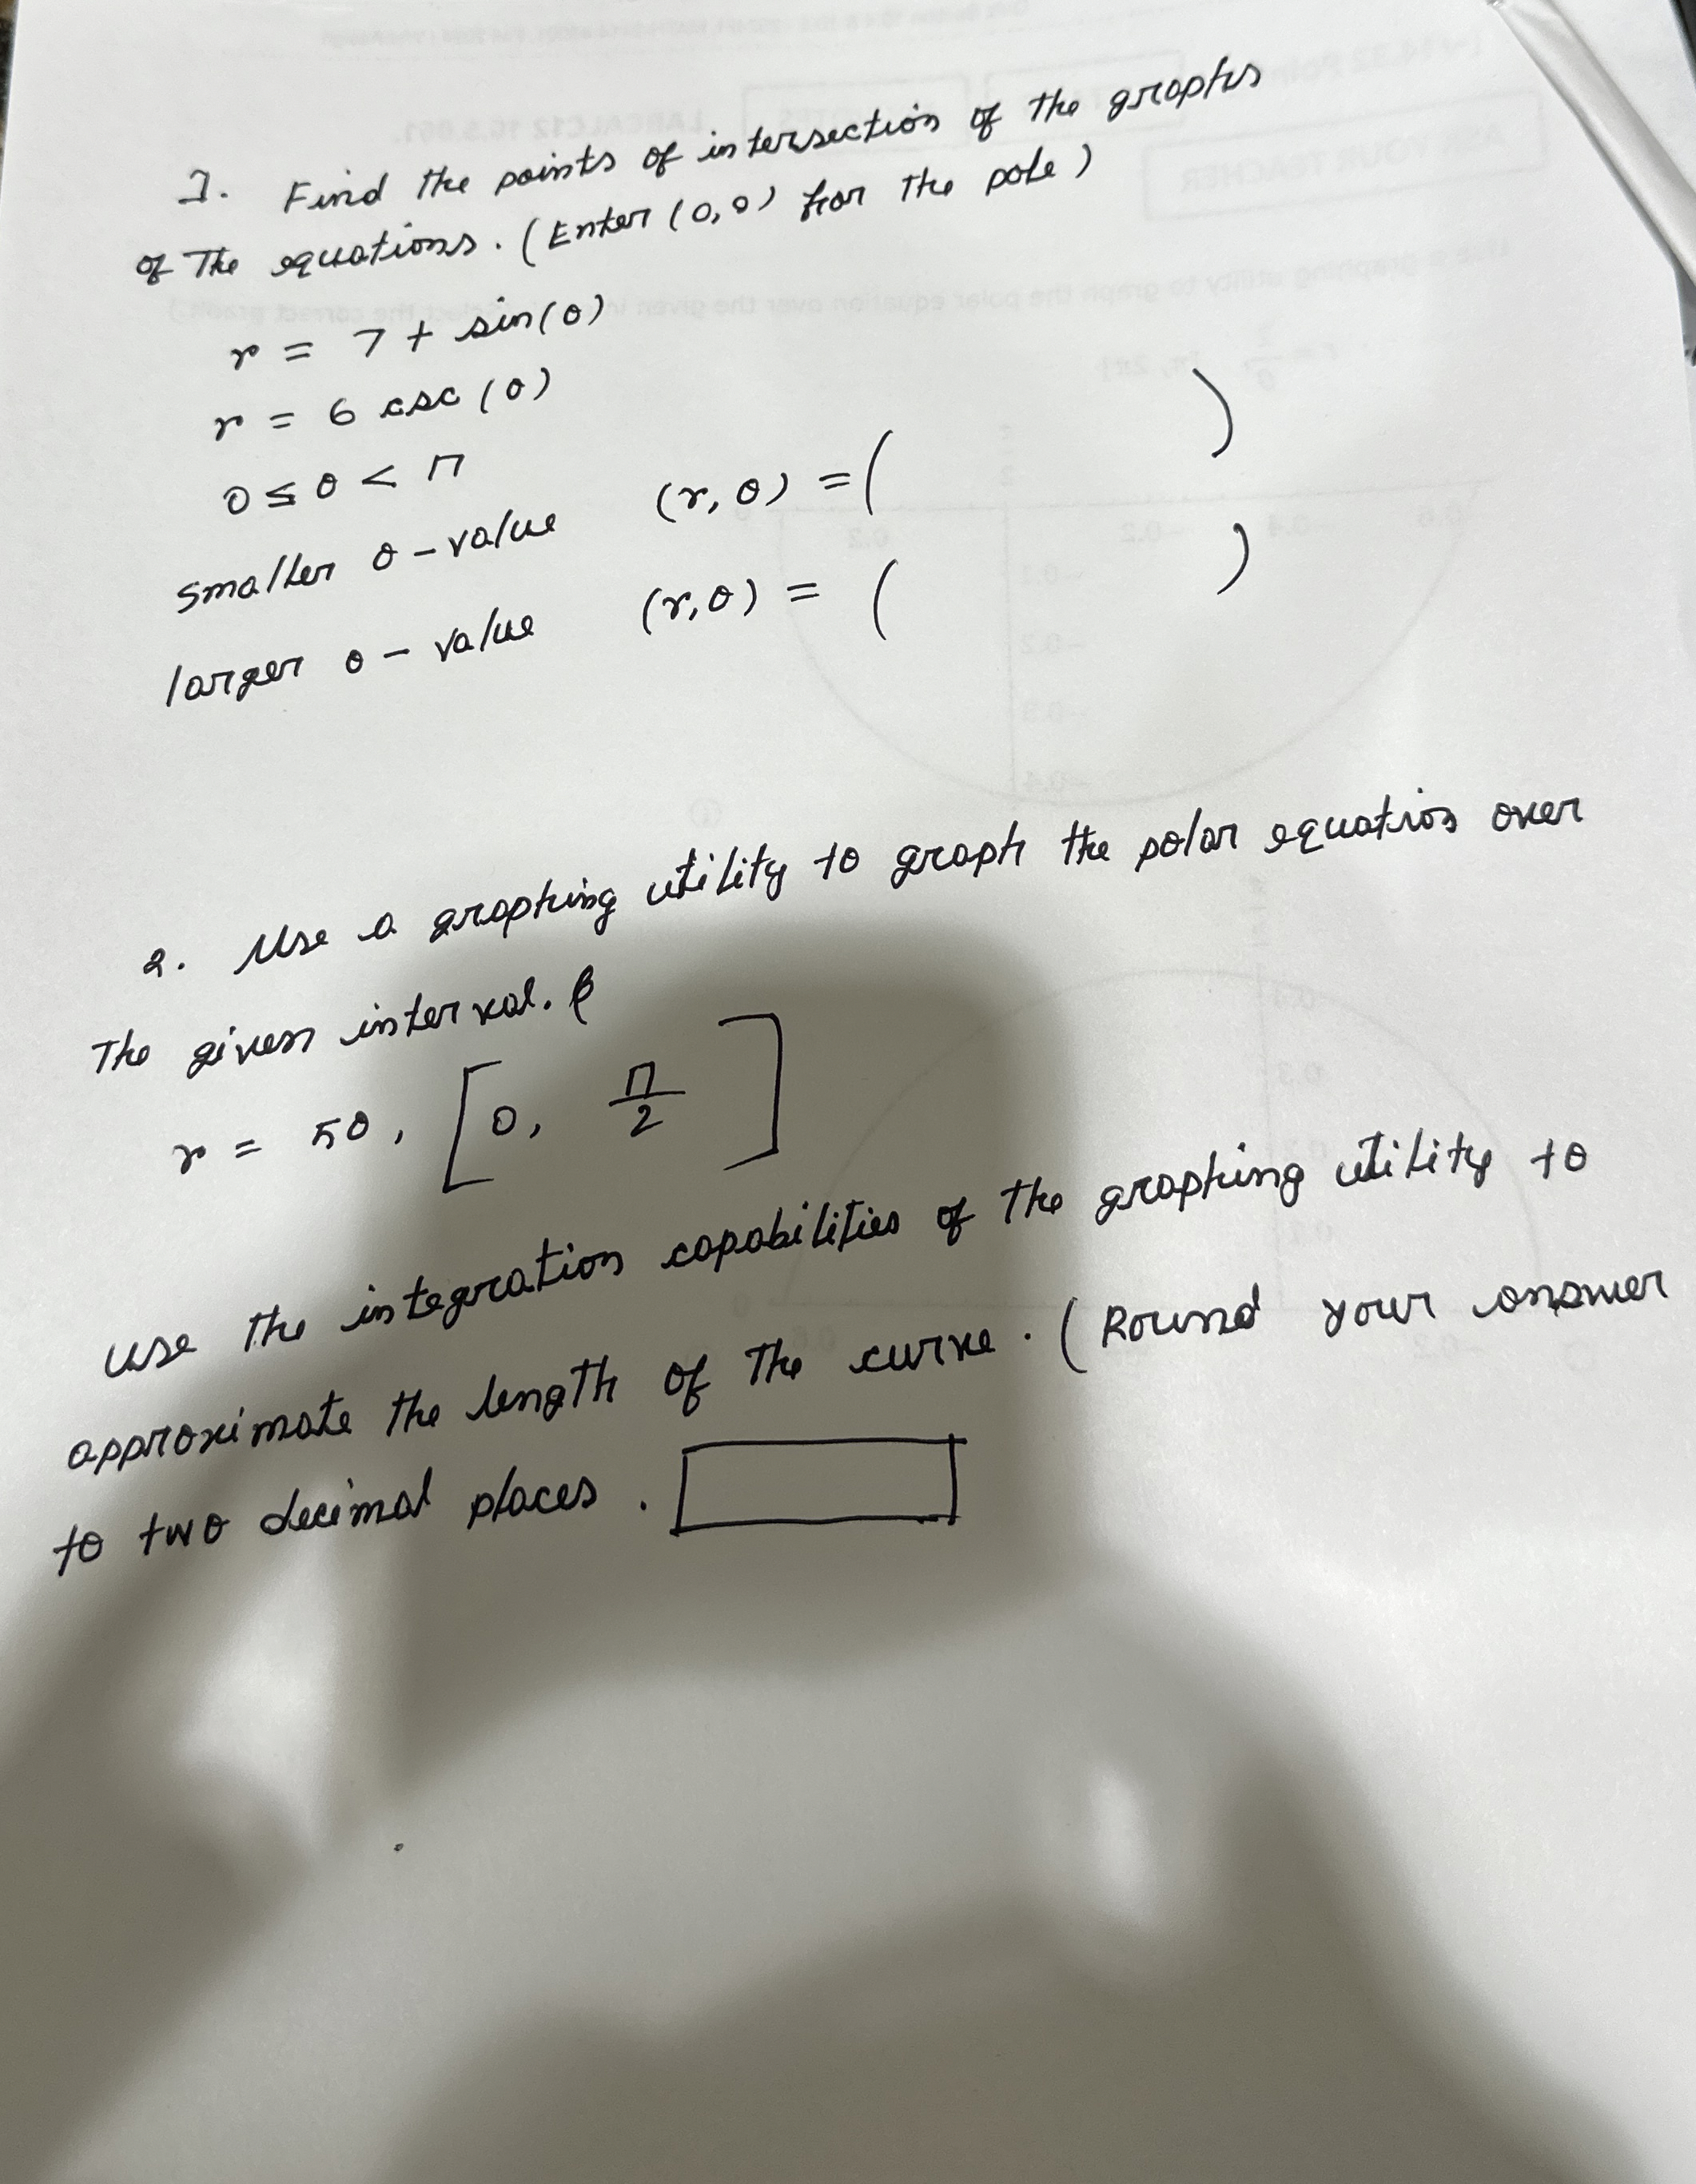 1. Find the points of intersection of the graphs
of the equations. (Enter (0,0) for the pole)
r = 7 + sin(θ)
r = 6 csc(θ)
0 ≤ θ < π
smaller θ-value (r, θ) = ( )
larger θ-value (r, θ) = ( )
2. Use a graphing utility to graph the polar equation over
The given interval.
r = 5θ, [0, π/2]
use the integration capabilities of the graphing utility to
approximate the length of the curve. (Round your answer
to two decimal places.